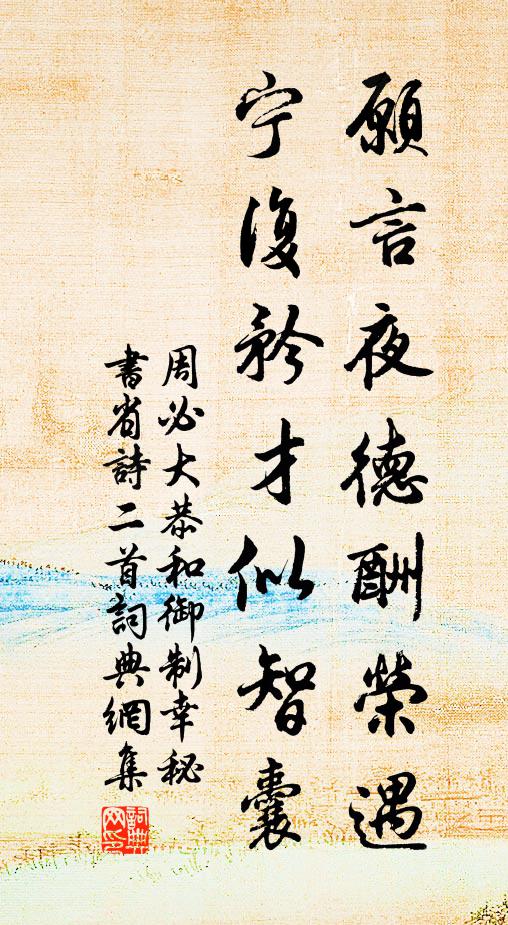 願言夜德酬榮遇
宁復矜才似智囊
周必大恭和御制幸秘
書省詩二首詞典網集
詞典
网印